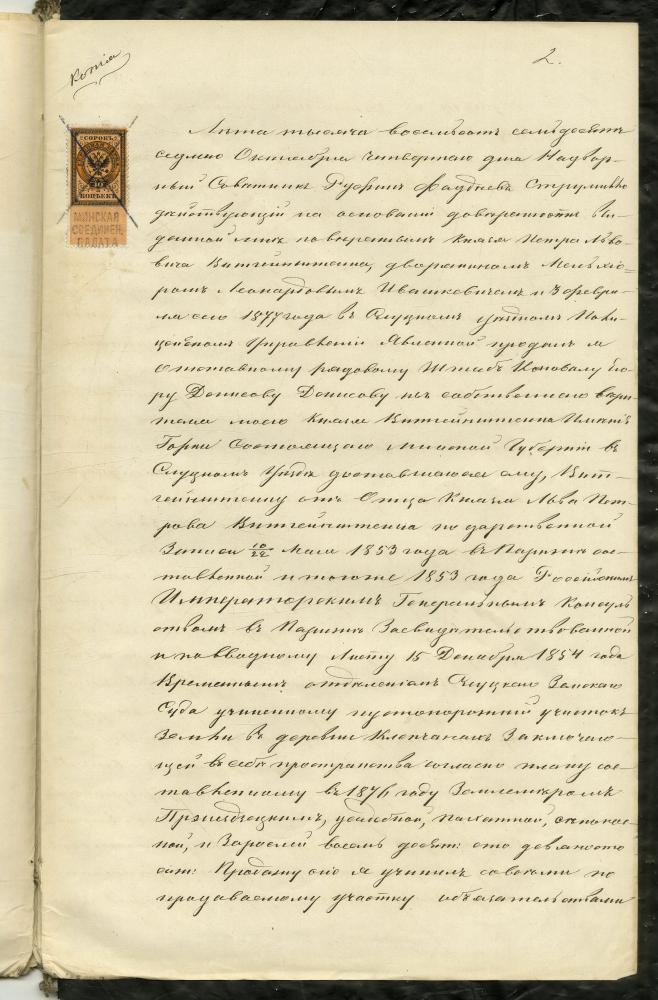 Копія
2.
СОРОКЪ
40
КОПѢЕКЪ
МИНСКАЯ
СОЕДИНЕН.
ПАЛАТА
Лѣта тысяча восемьсотъ семьдесятъ
седьмаго Октября четвертаго дня Надвор-
ный Совѣтникъ
дѣйствующій на основаніи довѣренности вы-
данной мнѣ повѣреннымъ Князя Петра Льво-
вича Витгенштейна, дворяниномъ Мельхіо-
ромъ Леонардовымъ Ивашкевичемъ и 3 Февра-
ля сего 1877 года въ Слуцкомъ уѣздномъ Поли-
цейскомъ Управленіи явленной продалъ я
отставному рядовому Штабъ Коновалу
Денисову Денисову изъ собственнаго
моего Князя Витгенштейна Имѣнія
Горки состоящаго Минской Губерніи въ
Слуцкомъ Уѣздѣ доставшагося ему, Вит-
генштейну отъ Отца Князя Льва Пет-
рова Витгенштейна по дарственной
Записи 10/22 Мая 1853 года въ Парижѣ сос-
тавленной и того же 1853 года Россійскимъ
Императорскимъ Генеральнымъ Консуль-
ствомъ въ Парижѣ Засвидѣтельствованной
и по вводному Листу 15 Декабря 1854 года
Временнымъ отдѣленіемъ Слуцкаго Земскаго
Суда учиненному пустопорожній участокъ
Земли въ деревни Клепчанахъ Заключаю-
щей въ себѣ пространства согласно плану сос-
тавленному въ 1876 году Землемѣромъ
удобной, пахатной, сѣнокос-
ной, и Зарослей восемь десят: сто девяносто
саж: Продажу сію я учинилъ совсѣми по
продаваемому участку обязательствами